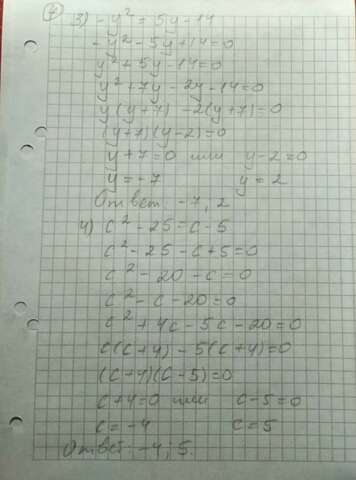 4
3) -y² = 5y - 14
-y² - 5y + 14 = 0
y² + 5y - 14 = 0
y² + 7y - 2y - 14 = 0
y(y+7) - 2(y+7) = 0
(y+7)(y-2) = 0
y+7=0 или y-2=0
y = -7 y = 2
Ответ: -7; 2
4) c² - 25 = c - 5
c² - 25 - c + 5 = 0
c² - 20 - c = 0
c² - c - 20 = 0
c² + 4c - 5c - 20 = 0
c(c+4) - 5(c+4) = 0
(c+4)(c-5) = 0
c+4=0 или c-5=0
c = -4 c = 5
Ответ: -4; 5.